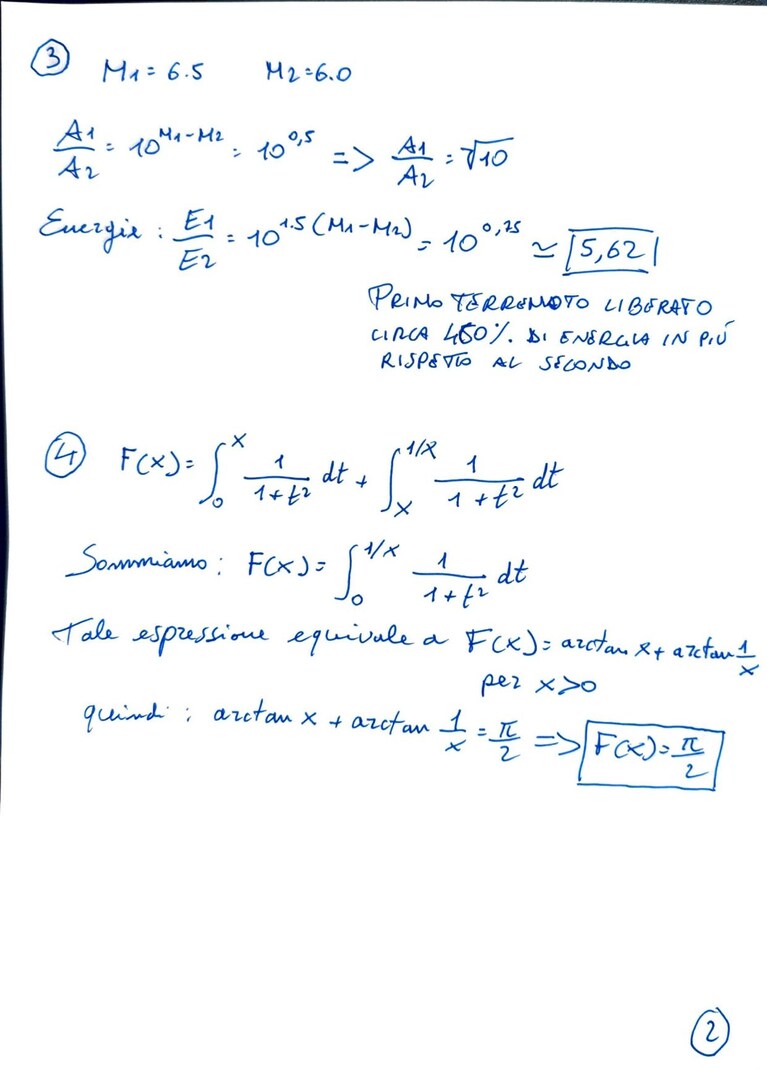 ③ M1 = 6.5 M2 = 6.0
A1/A2 = 10^(M1-M2) = 10^0,5 => A1/A2 = √10
Energia : E1/E2 = 10^1.5(M1-M2) = 10^0,75 ≃ 5,62
PRIMO TERREMOTO LIBERATO
CIRCA 460% DI ENERGIA IN PIÚ
RISPETTO AL SECONDO
④ F(x) = ∫_0^x 1/(1+t²) dt + ∫_x^(1/x) 1/(1+t²) dt
Sommiamo : F(x) = ∫_0^(1/x) 1/(1+t²) dt
Tale espressione equivale a F(x) = arctan x + arctan 1/x
per x>0
quindi : arctan x + arctan 1/x = π/2 => F(x) = π/2
②